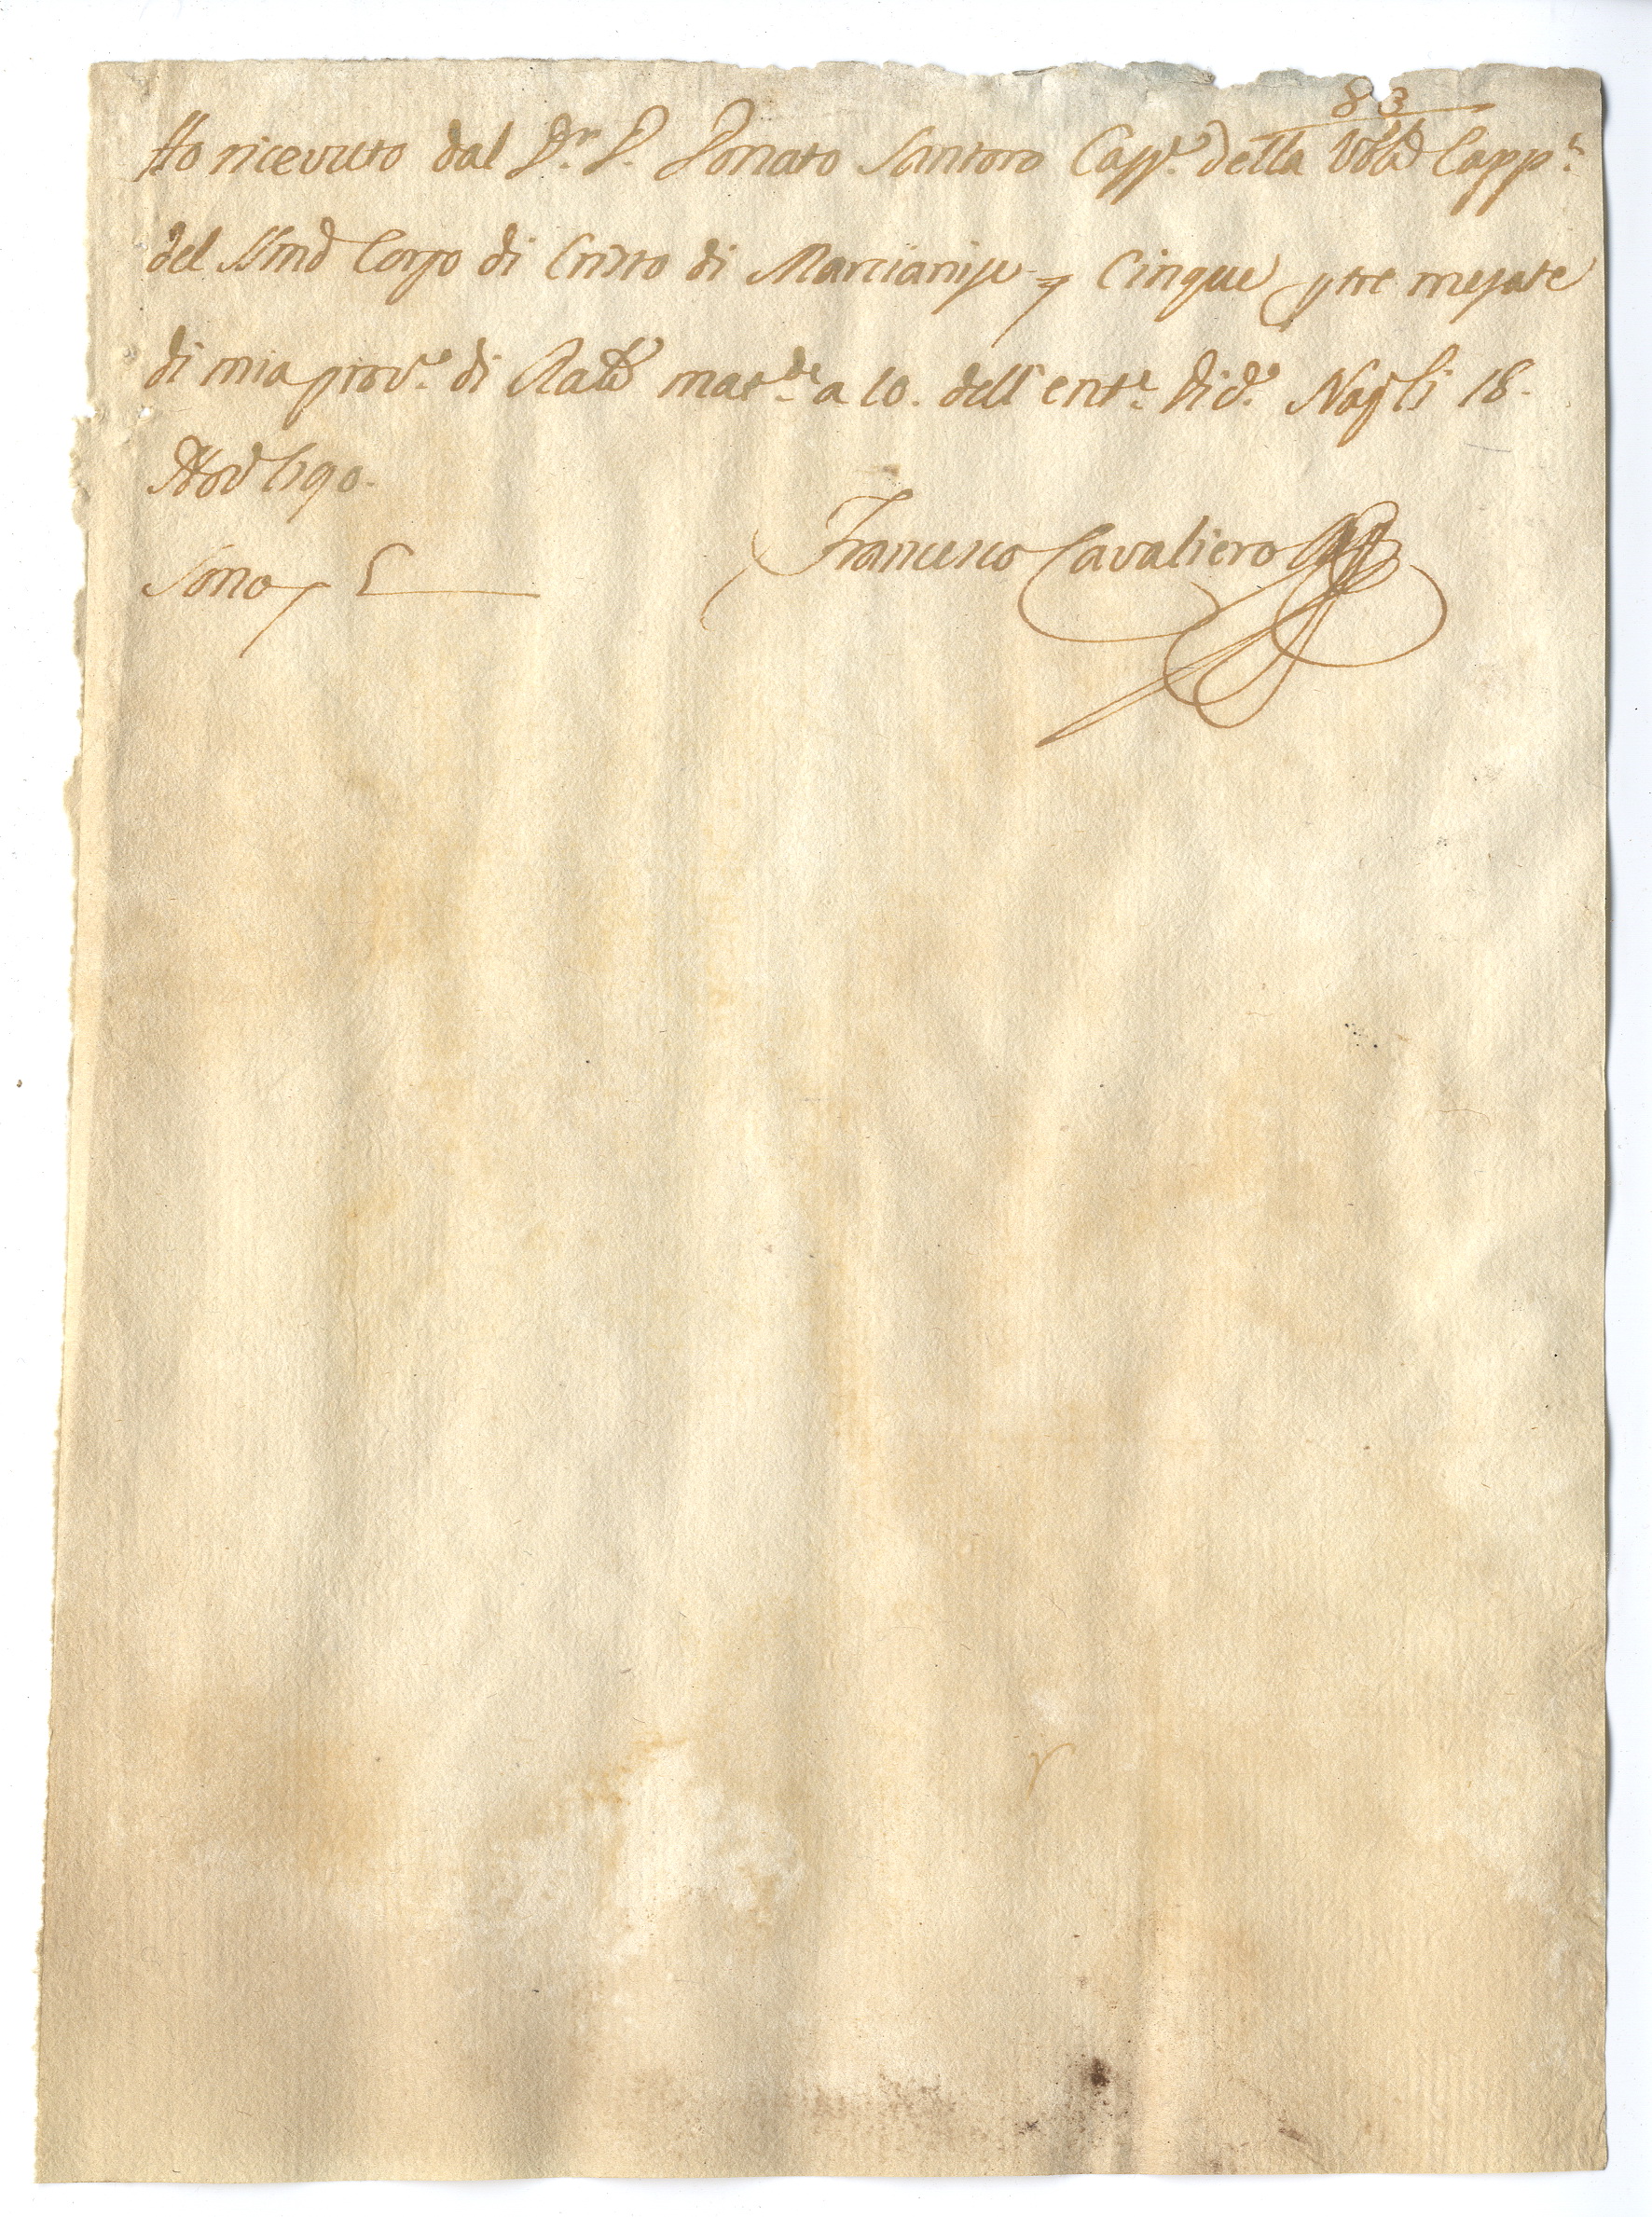 83
Ho ricevuto dal D.r D. Donato Santoro Capp.e della Ven.le Capp.a
del SSmo Corpo di Cristo di Marcianise Cinque p tre mesate
di mia prov.e di mat.te a 10. dell' ent.e di d.o Napoli 18.
1790.
Sono 5
Francesco Cavaliero